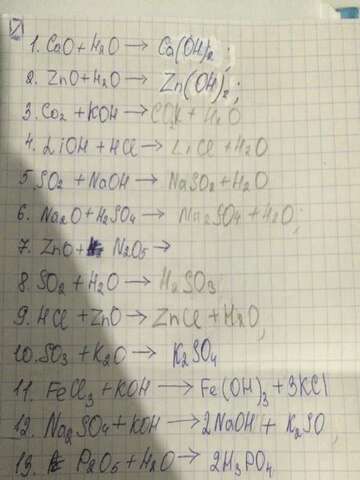 V
1. CaO + H2O → Ca(OH)2;
2. ZnO + H2O → Zn(OH)2;
3. CO2 + KOH → CO2K + H2O
4. LiOH + HCl → LiCl + H2O
5. SO2 + NaOH → NaSO2 + H2O
6. Na2O + H2SO4 → Na2SO4 + H2O;
7. ZnO + N2O5 →
8. SO2 + H2O → H2SO3
9. HCl + ZnO → ZnCl + H2O,
10. SO3 + K2O → K2SO4
11. FeCl3 + KOH → Fe(OH)3 + 3KCl
12. Na2SO4 + KOH → 2NaOH + K2SO,
13. P2O5 + H2O → 2H3PO4